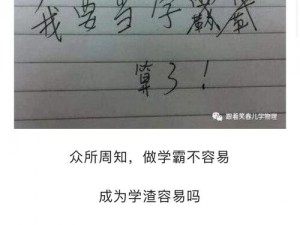 我要当学
算了！
跟着芙春儿学物理
众所周知，做学霸不容易
成为学渣容易吗